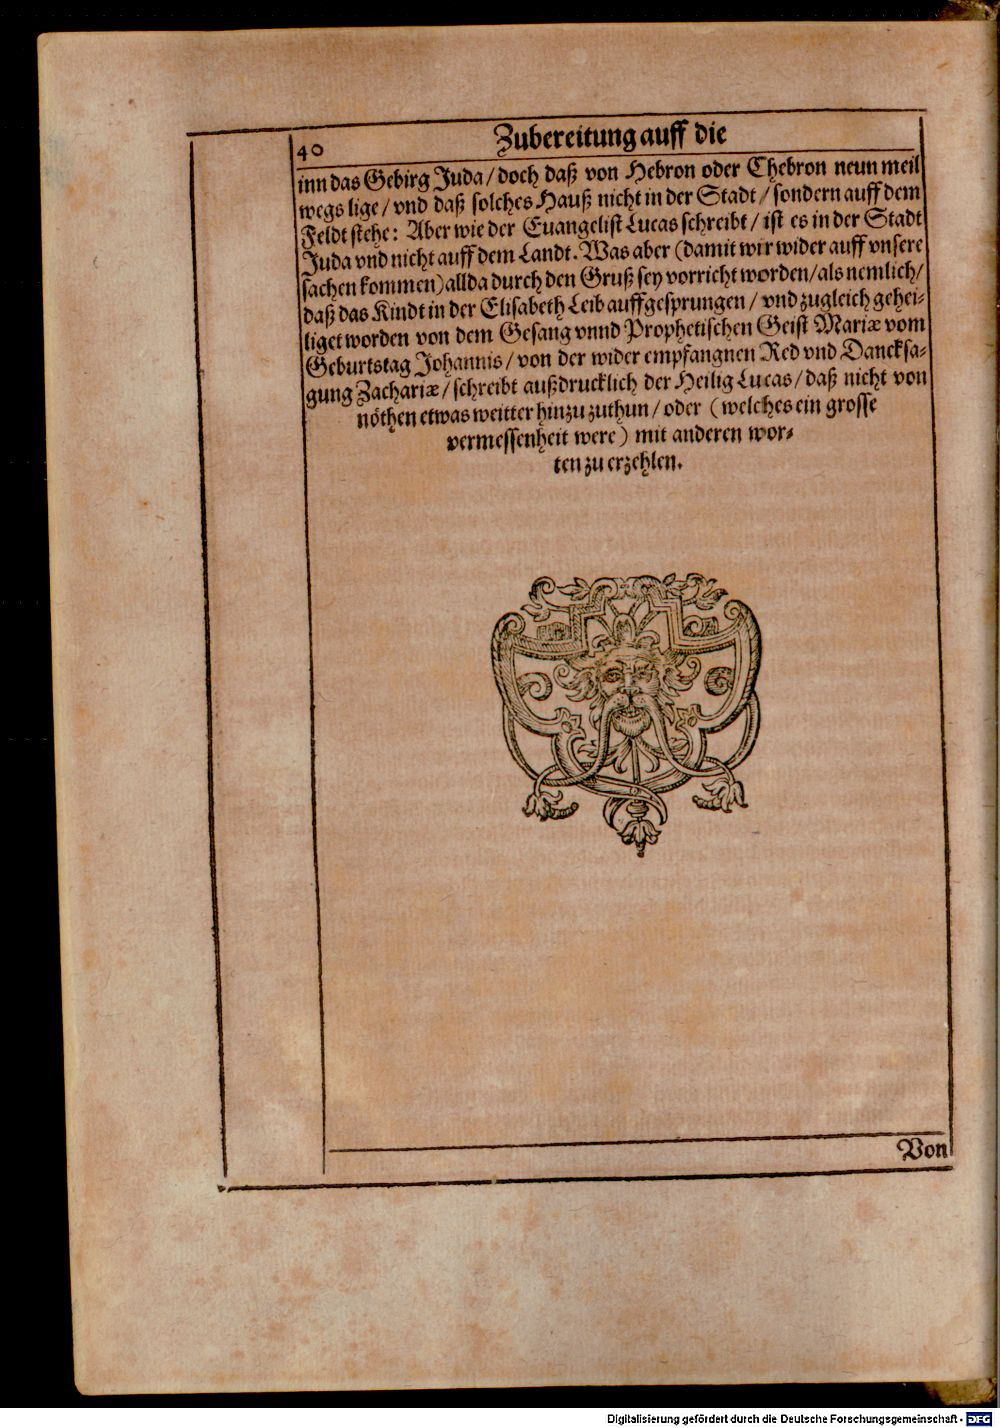 40
Zubereitung auff die
inn das Gebirg Juda / doch daß von Hebron oder Chebron neun meil
wegs lige / vnd daß solches Hauß nicht in der Stadt / sondern auff dem
Feldt stehe: Aber wie der Euangelist Lucas schreibt / ist es in der Stadt
Juda vnd nicht auff dem Landt. Was aber (damit wir wider auff vnsere
sachen kommen) allda durch den Gruß sey vorricht worden / als nemlich /
daß das Kindt in der Elisabeth Leib auffgesprungen / vnd zugleich gehei-
liget worden von dem Gesang vnnd Prophetischen Geist Mariæ vom
Geburtstag Johannis / von der wider empfangnen Red vnd Dancksa-
gung Zachariæ / schreibt außdrucklich der Heilig Lucas / daß nicht von
nöthen etwas weitter hinzu zuthun / oder (welches ein grosse
vermessenheit were) mit anderen wor-
ten zu erzehlen.
Von
Digitalisierung gefördert durch die Deutsche Forschungsgemeinschaft - DFG